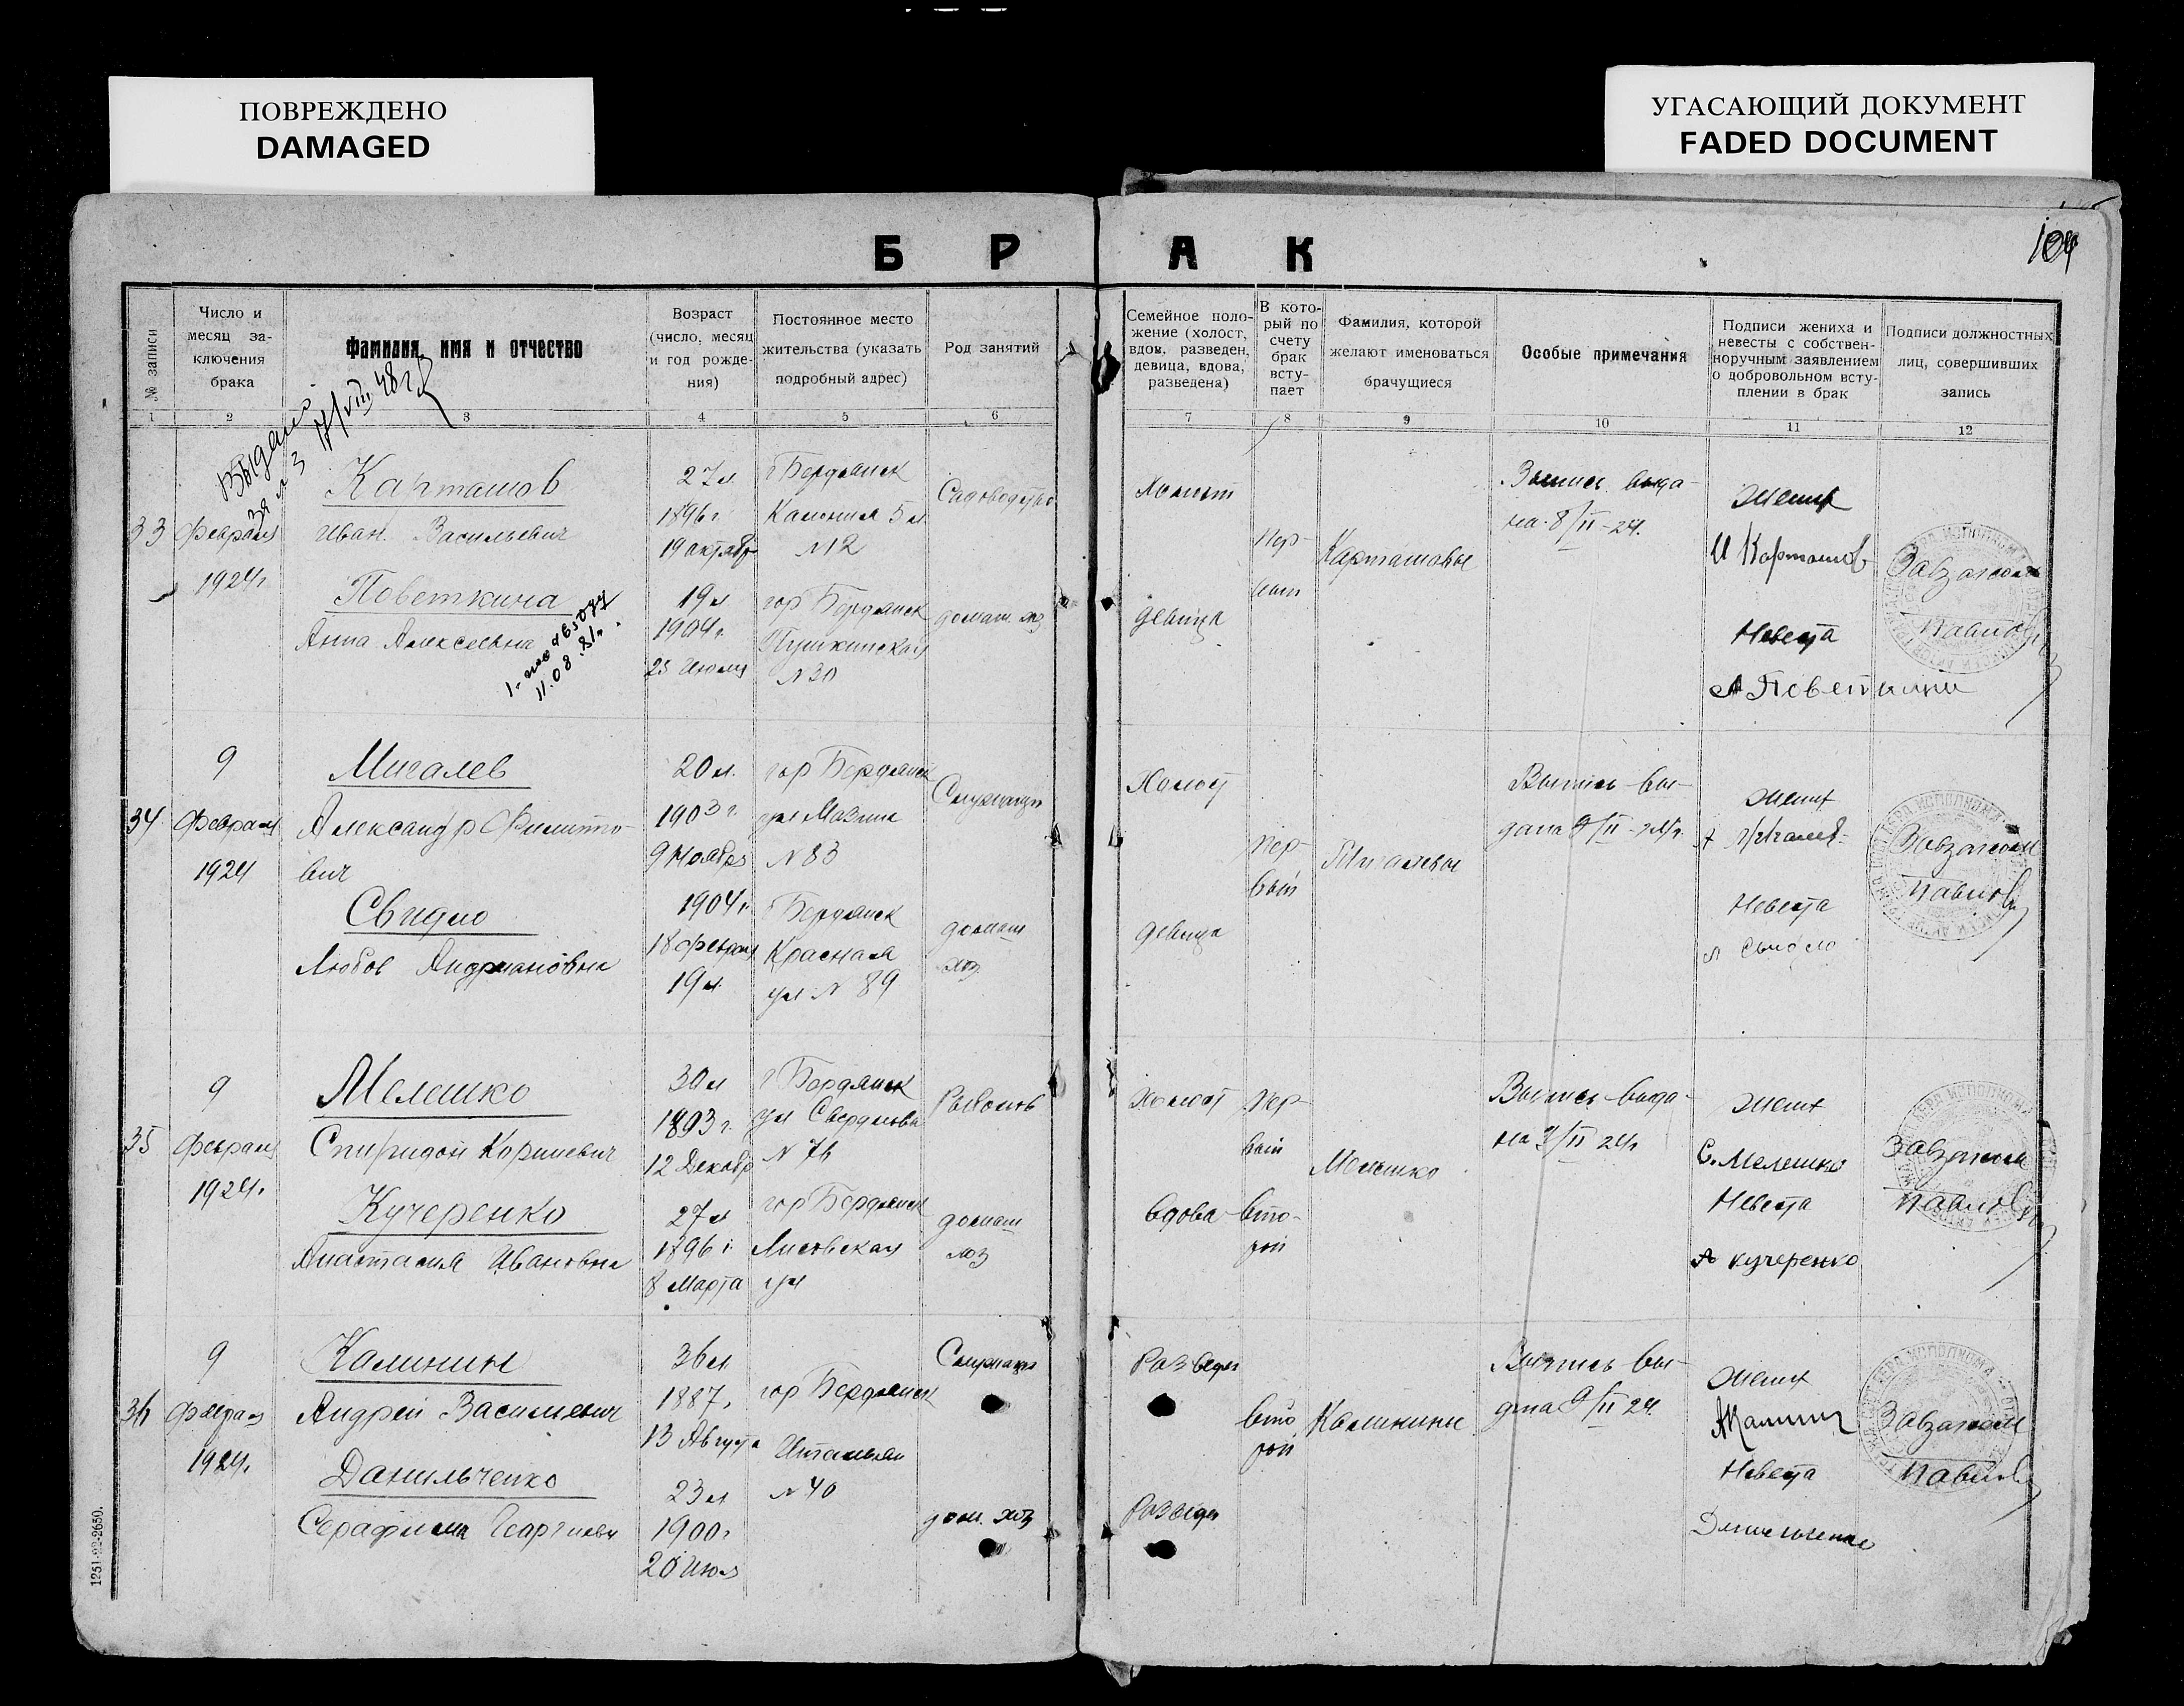 ПОВРЕЖДЕНО
DAMAGED
УГАСАЮЩИЙ ДОКУМЕНТ
FADED DOCUMENT
БРАК
104
№ записи
Число и
месяц за-
ключения
брака
Фамилия, имя и отчество
Возраст
(число, месяц
и год рожде-
ния)
Постоянное место
жительства (указать
подробный адрес)
Род занятий
Семейное поло-
жение (холост,
вдов, разведен,
девица, вдова,
разведена)
В кото-
рый по
счету
брак
всту-
пает
Фамилия, которой
желают именоваться
брачущиеся
Особые примечания
Подписи жениха и
невесты с собствен-
норучным заявлением
о добровольном всту-
плении в брак
Подписи должностных
лиц, совершивших
запись
1
2
3
4
5
6
7
8
9
10
11
12
Выдано
за № 3 17/VIII 48 г.
33
Февраля
1924 г
Карташов
Иван Васильевич
Поветкина
Анна Алексеевна
11.08.81г.
27 л
1896 г
19 октябр
19 л
1904 г.
23 Июля
г Бердянск
Колония 5 л
№ 12
гор Бердянск
Пушкинская
№ 30
Садоводство
домаш. хоз
Холост
девица
Пер-
вый
Карташовы
Выпись выда-
на 8/II-24.
Жених
И Карташов
Невеста
А Поветкина
Завзагсом
Павлов
34
9
Февраля
1924
Мигалев
Александр Филиппо-
вич
Свидло
Любов Андриановна
20 л.
1903 г
9 Ноября
1904 г
18 февраля
19 л
гор Бердянск
ул Мазина
№ 83
г Бердянск
Красная
ул № 89
Служащий
домаш
хоз
Холост
девица
пер-
вый
Мигалевы
Выпись вы-
дана 9/II-24г.
Жених
Невеста
Завзагсом
Павлов
35
9
Февраля
1924г.
Мелешко
Спиридон Корнеевич
Кучеренко
Анастасия Ивановна
30 л
1893 г.
12 Декабр
27 л
1896 г
8 Марта
г Бердянск
ул Свердлова
№ 76
гор Бердянск
ул
домаш
хоз
Холост
вдова
Пер-
вый
вто-
рой
Мелешко
Выпись выда-
на 9/II 24г
Жених
С. Мелешко
Невеста
А Кучеренко
Завзагсом
Павлов
36
9
Февраля
1924г.
Калинин
Андрей Васильевич
Данильченко
Серафима Георгиевн
36 л.
1887 г
13 Августа
23 л
1900 г
20 Июля
гор Бердянск
Итальян
№ 40
Служащий
дом. хоз
Разведен
Разведен
вто
рой
Калинины
Выпись вы-
дана 9/II 24
Жених
АКалинин
Невеста
Данильченко
Завзагсом
Павлов
1251-22-2650.